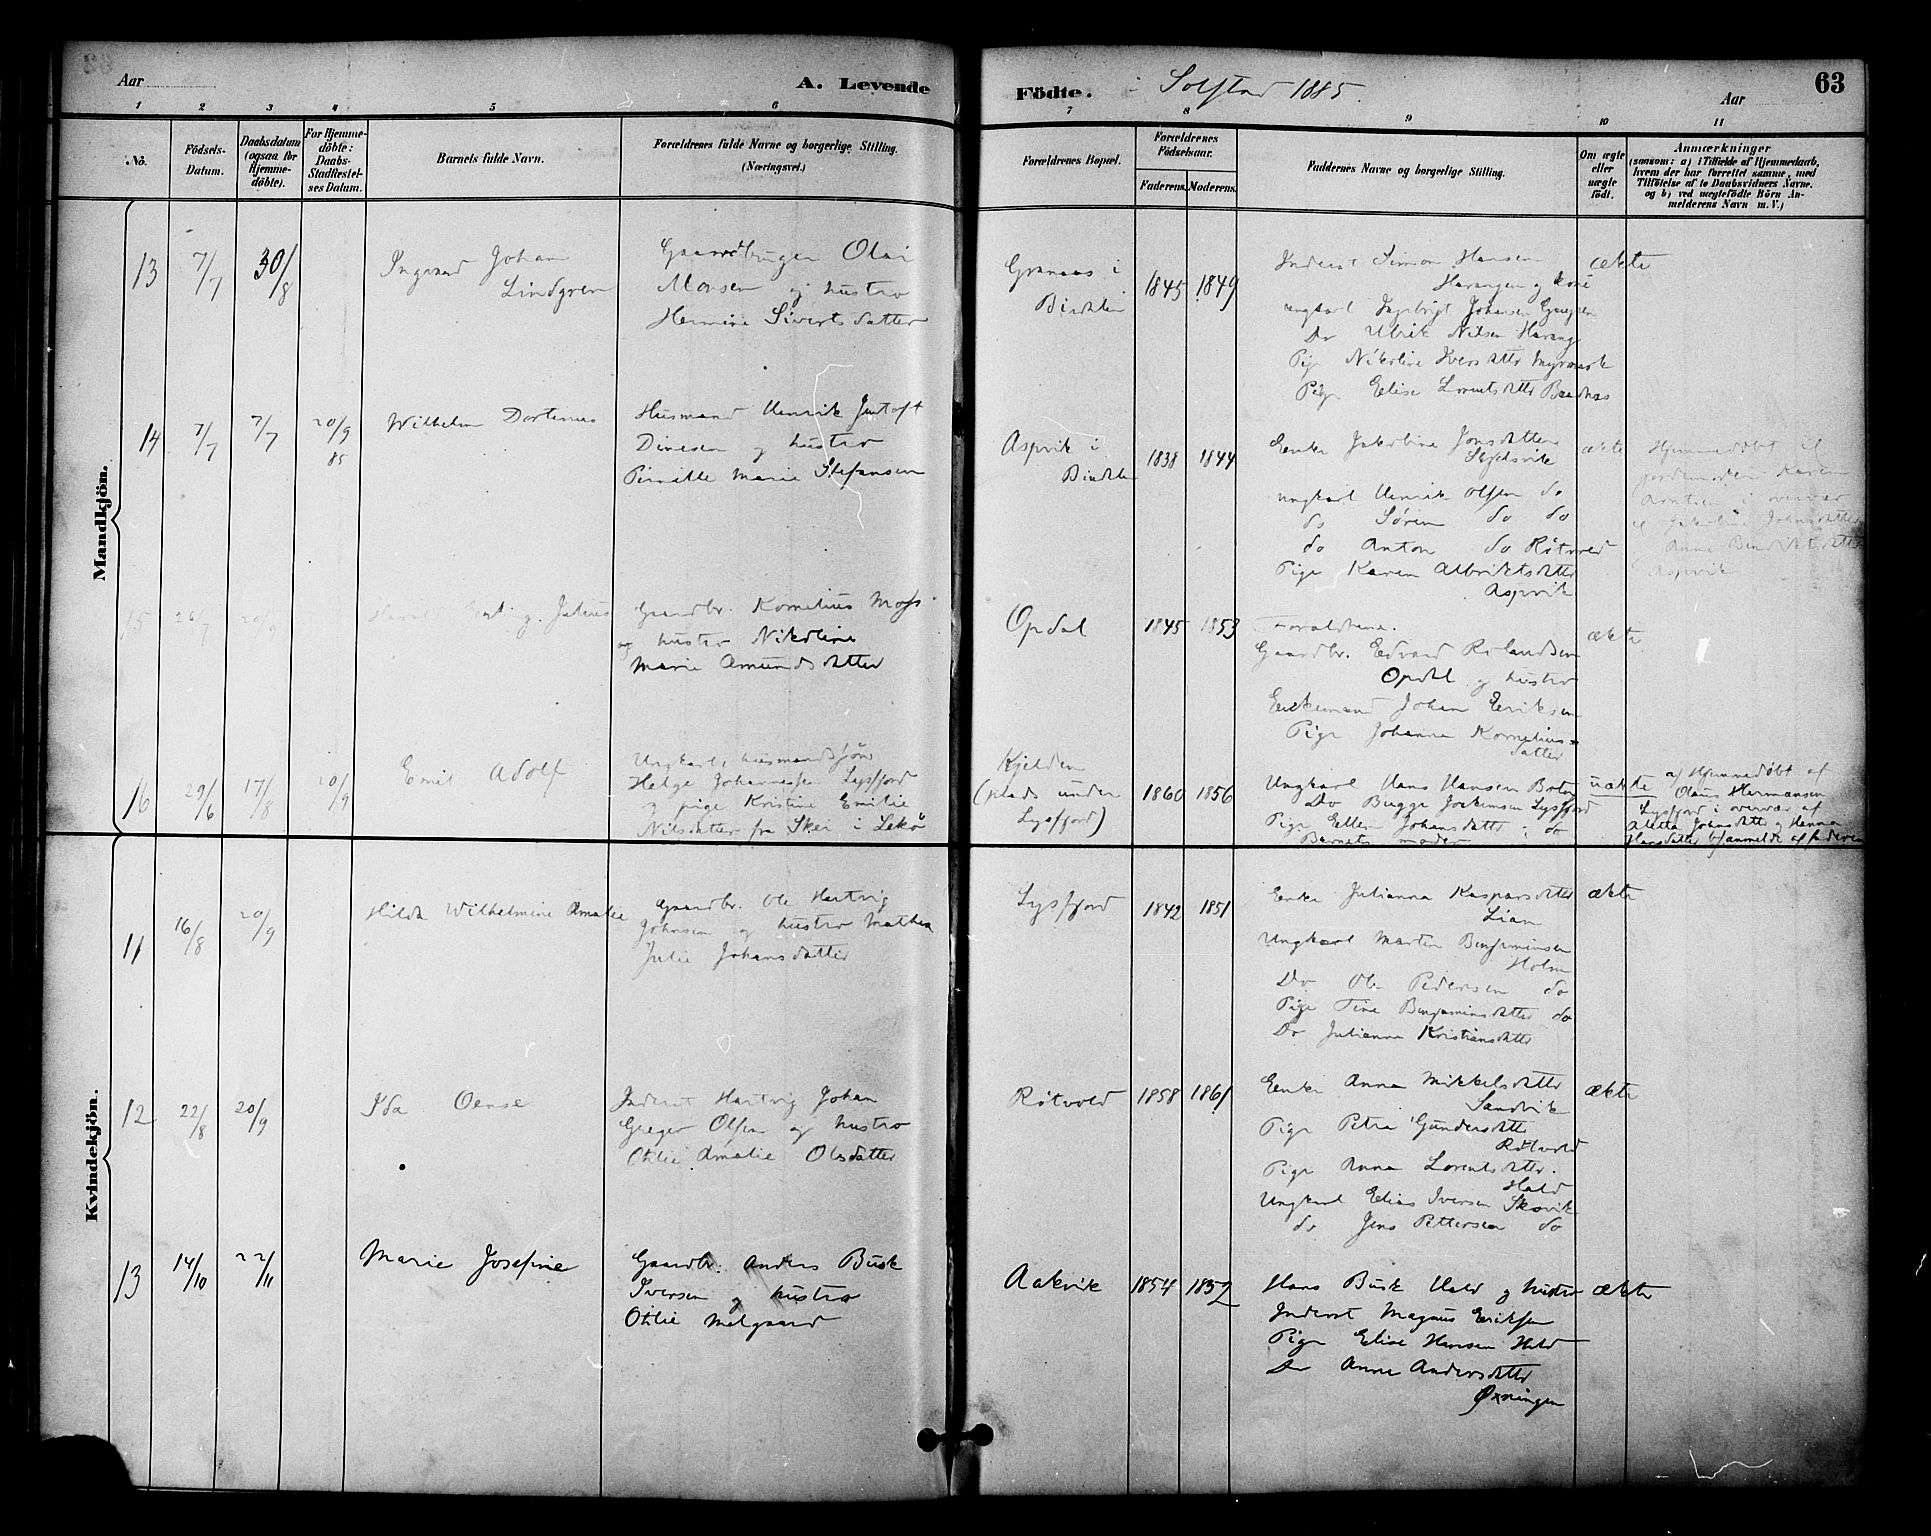 Aar
A. Levende
Födte. - Solstad 1885.
Aar
63
1 2 3 4 5 6 7 8 9 10 11
No.
Födsels-
Datum.
Daabsdatum
(ogsaa for
Hjemme-
döbte).
For Hjemme-
döbte:
Daabs-
Stadfæstel-
ses Datum.
Barnets fulde Navn.
Forældrenes fulde Navne og borgerlige Stilling.
(Næringsvei.)
Forældrenes Bopæl.
Forældrenes
Födselsaar.
Faderens. Moderens.
Faddernes Navne og borgerlige Stilling.
Om ægte
eller
uægte
födt.
Anmærkninger
(saasom: a) i Tilfælde af Hjemmedaab,
hvem der har forrettet samme, med
Tilföielse af to Daabsvidners Navne.
og b) ved uægtefödte Börn An-
melderens Navn m. V.)
Mandkjön.
13
7/7
30/8
Ingvard Johan
Lindgren
Gaardbruger Olai
Monsen og hustro
Hermine Sivertsdatter
Granaas i
Bindalen
1845 1849
Inderst Simon Hansen
Harangen og kone
ungkarl Ingebrigt Johansen
Do Ulrik Nilsen Harang
Pige Nikoline Iversdatter
Pige Elise Lorentsdatter
ækte
14
7/7
7/7
20/9
85
Wilhelm Dortenus
Husmand Henrik
Dinesen og hustro
Pernille Marie Stefansen
Aspvik i
Bindalen
1838 1844
Enke Jakobine Jonsdatter
ungkarl Henrik Olsen do
do Sören do do
do Anton do Røtvold
Pige Karen Albriktsdatter
Aspvik
ækte
Hjemmedøbt af
jordemoder Karen
i overvær
af Jakobine Johnsdatter
Anne Bendiktsdatter
Aspvik
15
26/7
20/9
g. Julius
Gaardbr. Kornelius Moss
og hustro Nikoline
Marie Amundsdatter
Opdal
1845 1853
Forældrene.
Gaardbr. Edvard Rolandsen
Opdal og hustro
Enkemand Johan Eriksen
Pige Johanna Kornelius-
datter
ækte
16
29/6
17/8
20/9
Emil Adolf
Ungkarl, husmandssøn
Helge Johannessen Lysfjord
og pige Kristine Emilie
Nilsdatter fra Skei i Lekø
Kjelden
(plads under
Lysfjord)
1860 1856
Ungkarl Hans Hansen
Do Bugge Jockimsen Lysfjord
Pige Ellen Johansdatter do
Barnets moder
uækte
a/ Hjemmedøbt af
Olaus Hermansen
Lysfjord i overvær af
Aletta Johnsdatter og Hanna
Hansdatter b/ anmeldt af faderen
Kvindekjön.
11
16/8
20/9
Hilda Wilhelmine Amalie
Gaardbr. Ole Hartvig
Johnsen og hustro Mathea
Julie Johansdatter
Lysfjord
1842 1851
Enke Julianna Kasparsdatter
Lian
Ungkarl Martin Benjaminsen
Holm
Do Ole Pedersen do
Pige Tine Benjaminsdatter do
Do Julianna Kristiansdatter
ækte
12
22/8
20/9
Ida Oense
Inderst Hartvig Johan
Greger Olsen og hustro
Otilie Amalie Olsdatter
Røtvold
1858 1861
Enke Anna Mikkelsdatter
Sandvik
Pige Petra Gundersdatter
Røtvold
Pige Anna Lorentsdatter.
Hald
Ungkarl Elias Iversen Skovik
do Jens Pettersen do
ækte
13
14/10
22/11
Marie Josefine
Gaardbr. Anders Busk
Iversen og hustro
Otilie Melgaard
Aakvik
1854 1852
Hans Busk Hald og hustro
Inderst Magnus Eriksen
Pige Elise Hansen Hald
Do Anne Andersdatter
Øxningen
ækte